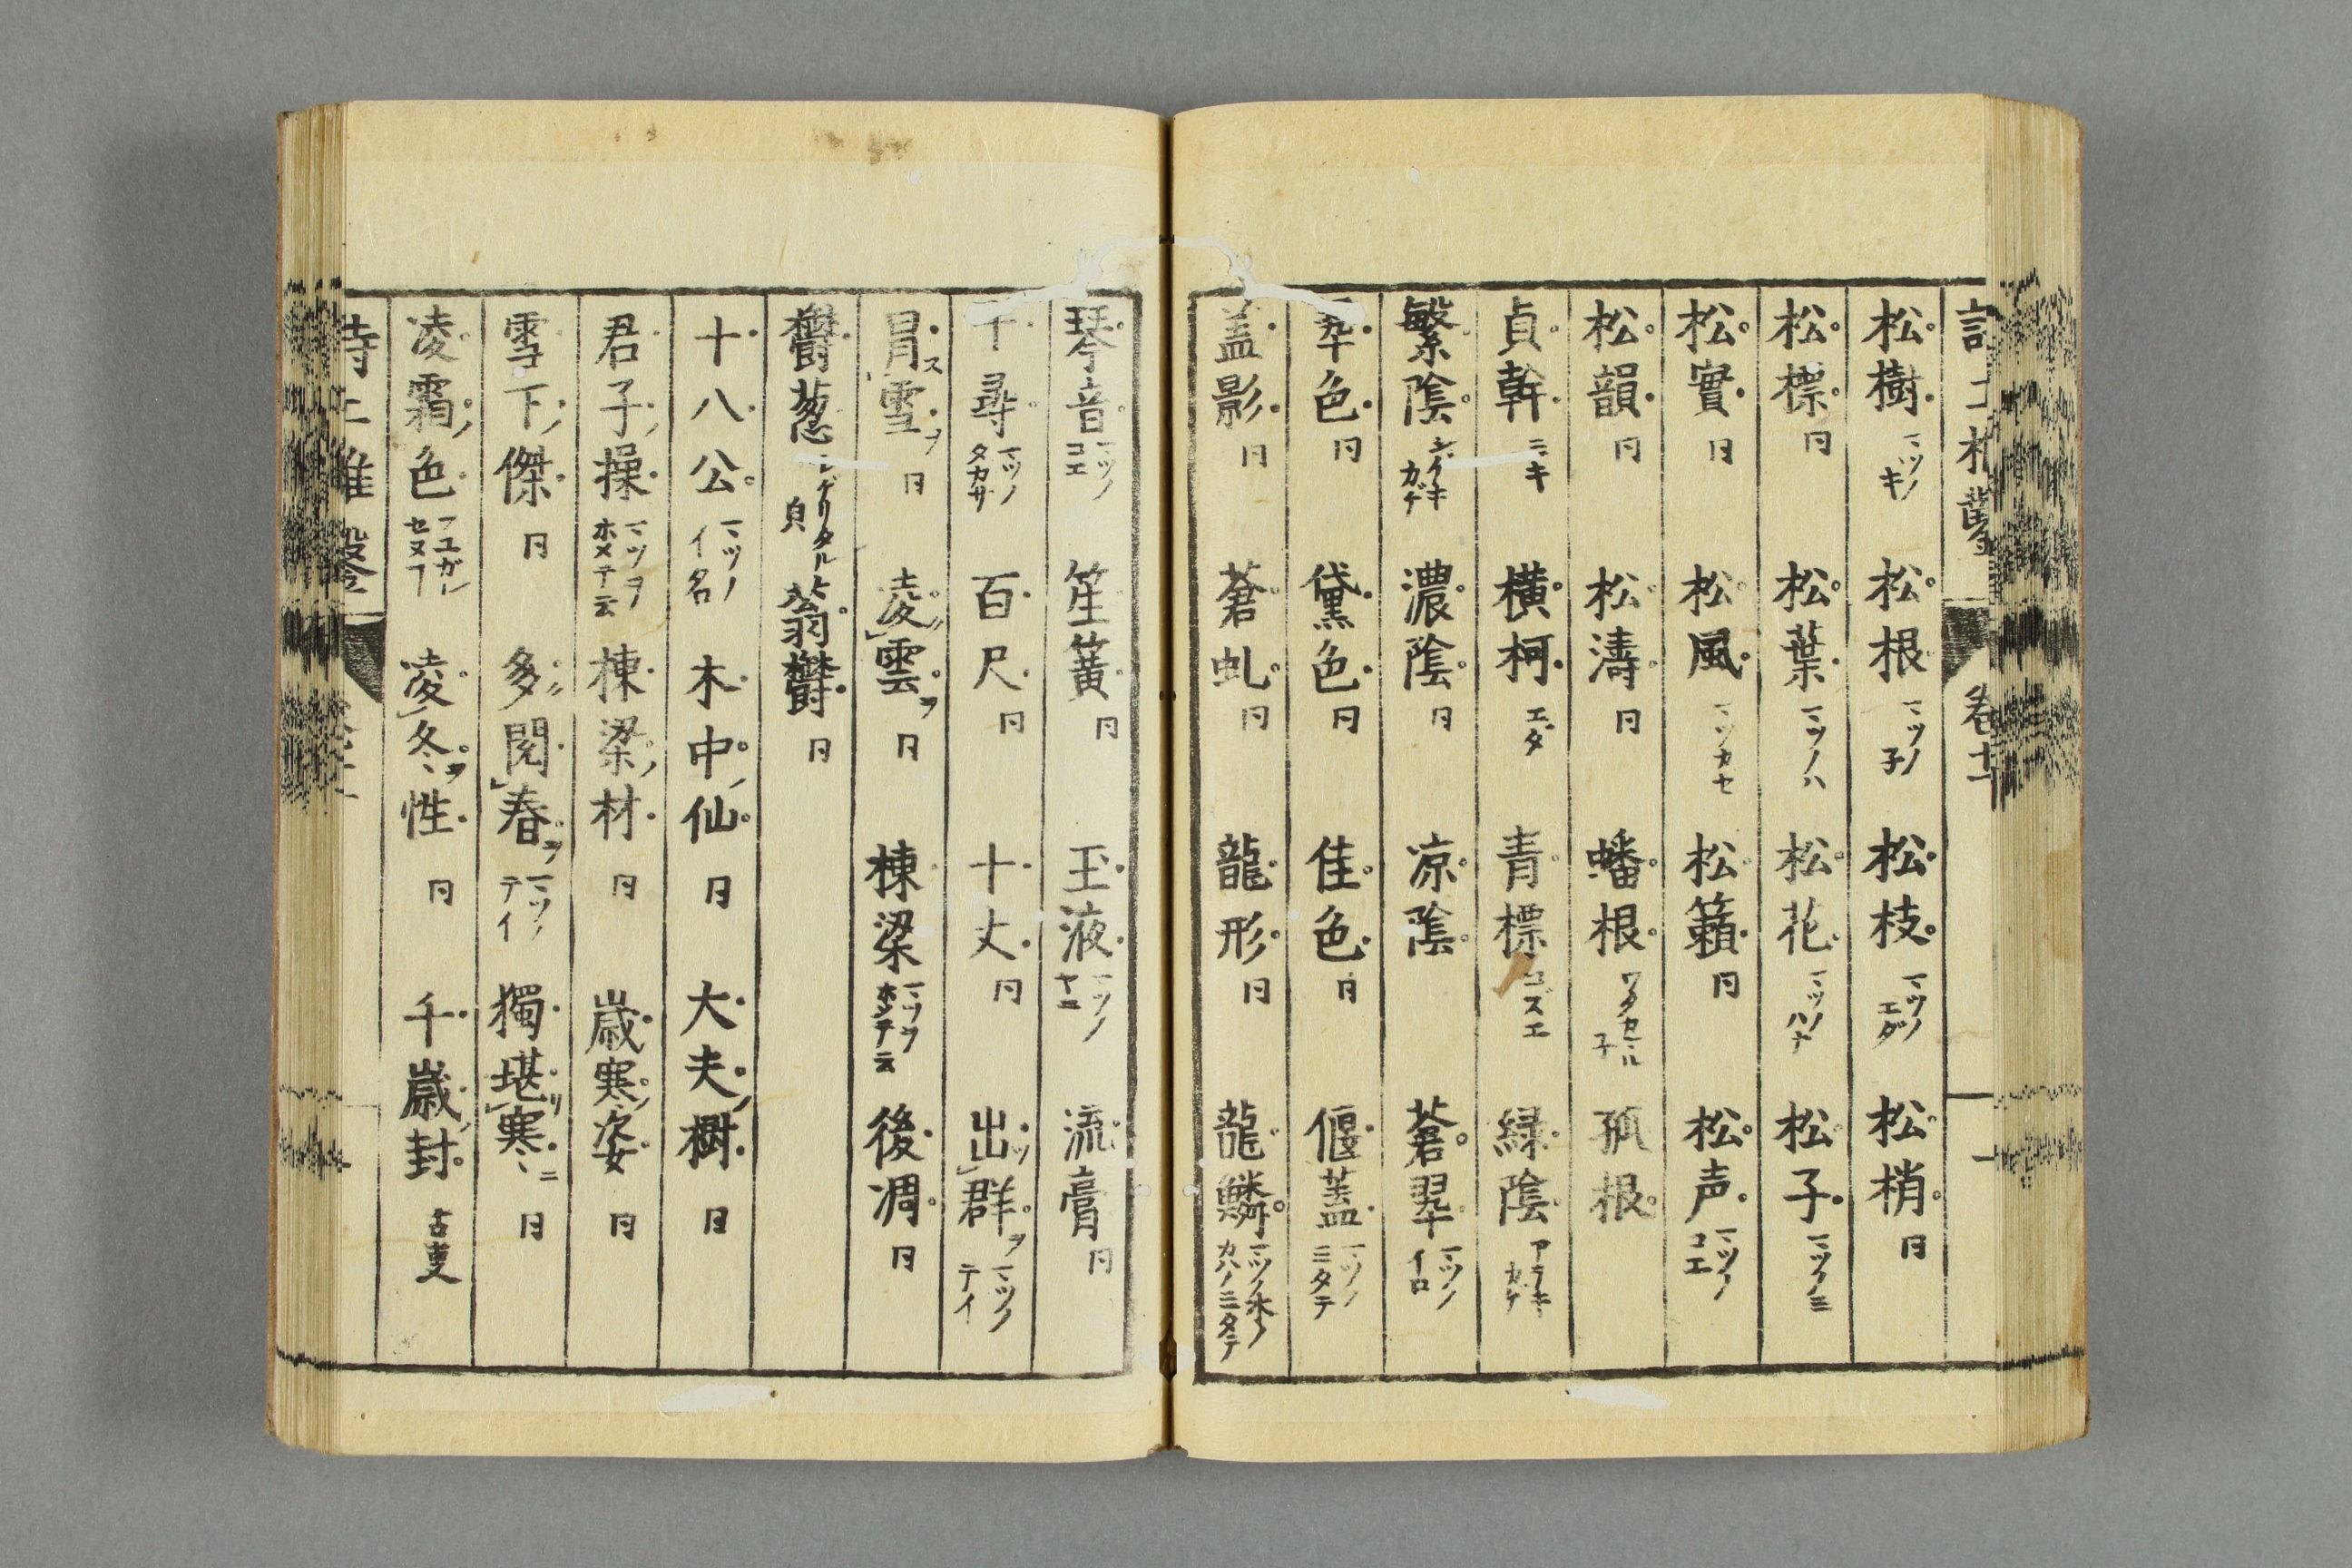 松樹 マツノキ 松根 マツノ子 松枝 マツノエダ 松梢 同
松標 同 松葉 マツノハ 松花 マツノハナ 松子 マツノミ
松實 同 松風 マツカセ 松籟 同 松声 マツノコエ
松韻 同 松濤 同 蟠根 ワダカマル子 孤根
貞幹 ミキ 横柯 エダ 青標 コズエ 緑陰 アヲキカゲ
繁陰 シゲキカゲ 濃陰 同 凉陰 蒼翠 マツノイロ
翠色 同 黛色 同 佳色 同 偃蓋 マツノミタテ
蓋影 同 蒼虬 同 龍形 同 龍鱗 マツノ木ノカハノミタテ
琴音 マツノコエ 笙簧 同 玉液 マツノヤニ 流膏 同
千尋 マツノタカサ 百尺 同 十丈 同 出ツ群ヲ マツノテイ
冒ス雪ヲ 同 凌グ雲ヲ 同 棟梁 マツヲホメテ云 後凋 同
欝葱 シゲリタル皃 蓊欝 同
十八公 マツノイ名 木中ノ仙 同 大夫ノ樹 同
君子ノ操 マツヲホメテ云 棟梁ノ材 同 歳寒ノ姿 同
雪下ノ傑 同 多ク閲春ヲ マツノテイ 獨堪リ寒ニ 同
凌霜ノ色 フユガレセヌヿ 凌冬ヲ性 同 千歳ノ封 古吏
卷十一